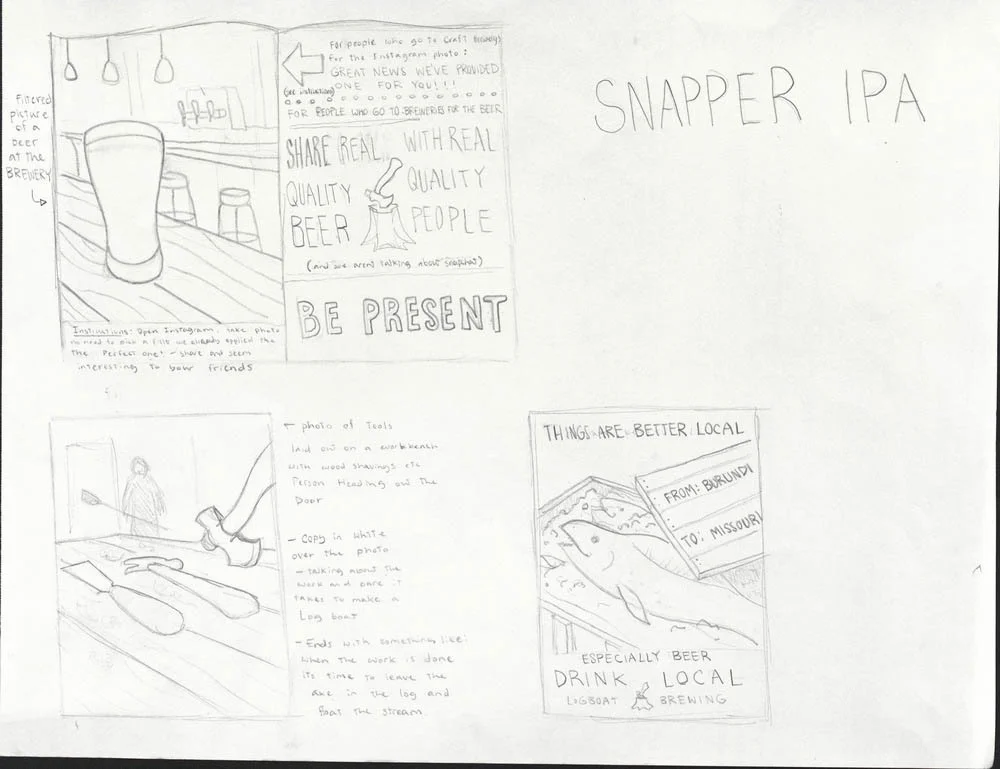 SNAPPER IPA
Filtered
picture
of a
beer
at the
BREWERY
For people who go to Craft Brewerys
For the Instagram photo:
GREAT NEWS WE'VE PROVIDED
ONE FOR YOU!!!
(see instructions)
FOR PEOPLE WHO GO TO BREWERIES FOR THE BEER
SHARE REAL WITH REAL
QUALITY QUALITY
BEER PEOPLE
(and we aren't talking about snapchat)
BE PRESENT
Instructions: Open Instagram, take photo
no need to pick a filter we already applied the
the Perfect one! - share and seem
interesting to your friends
← photo of Tools
laid out on a workbench
with wood shavings etc
Person Heading out the
Door
- Copy in white
over the photo
- talking about the
work and care it
takes to make a
Log boat
- Ends with something like:
when the work is done
its time to leave the
axe in the log and
float the stream.
THINGS ARE BETTER LOCAL
FROM: BURUNDI
TO: MISSOURI
ESPECIALLY BEER
DRINK LOCAL
LOGBOAT BREWING